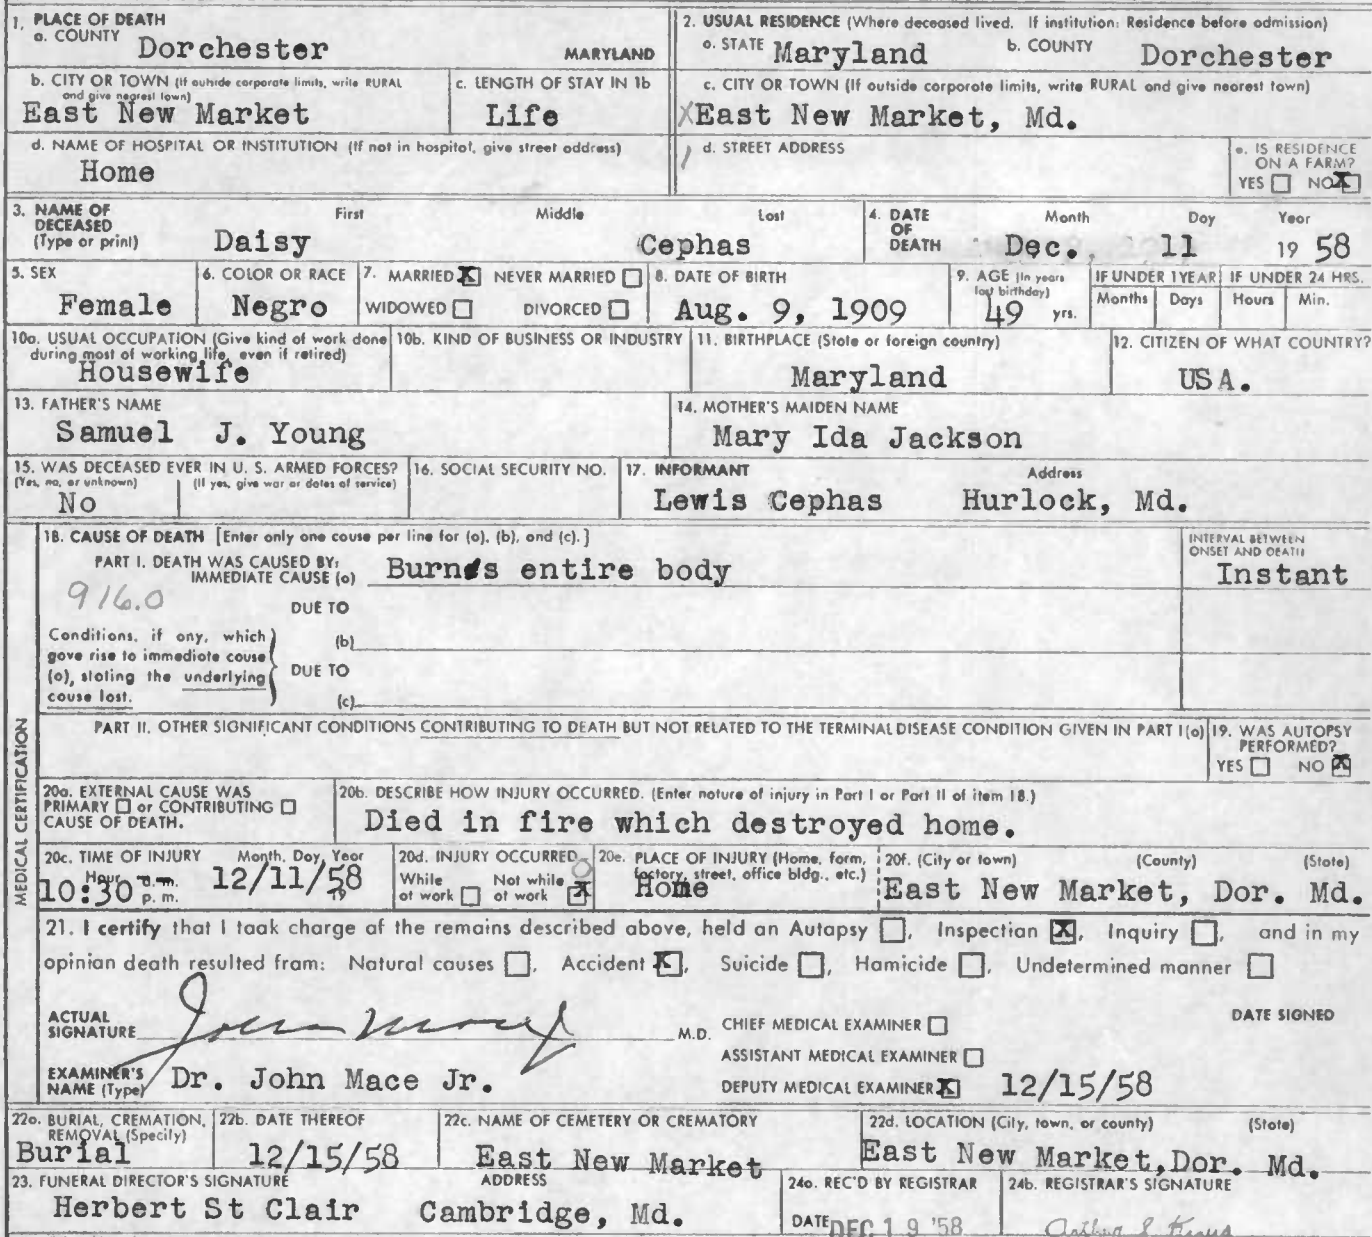 1. PLACE OF DEATH
a. COUNTY Dorchester MARYLAND
2. USUAL RESIDENCE (Where deceased lived. If institution: Residence before admission)
a. STATE Maryland b. COUNTY Dorchester
b. CITY OR TOWN (If outside corporate limits, write RURAL and give nearest town)
East New Market
c. LENGTH OF STAY IN 1b
Life
c. CITY OR TOWN (If outside corporate limits, write RURAL and give nearest town)
XEast New Market, Md.
d. NAME OF HOSPITAL OR INSTITUTION (If not in hospital, give street address)
Home
d. STREET ADDRESS
e. IS RESIDENCE ON A FARM?
YES NO X
3. NAME OF DECEASED (Type or print)
First Middle Last
Daisy Cephas
4. DATE OF DEATH
Month Day Year
Dec. 11 19 58
5. SEX
Female
6. COLOR OR RACE
Negro
7. MARRIED X NEVER MARRIED
WIDOWED DIVORCED
8. DATE OF BIRTH
Aug. 9, 1909
9. AGE (In years last birthday)
49 yrs.
IF UNDER 1 YEAR
Months Days
IF UNDER 24 HRS.
Hours Min.
10a. USUAL OCCUPATION (Give kind of work done during most of working life, even if retired)
Housewife
10b. KIND OF BUSINESS OR INDUSTRY
11. BIRTHPLACE (State or foreign country)
Maryland
12. CITIZEN OF WHAT COUNTRY?
USA.
13. FATHER'S NAME
Samuel J. Young
14. MOTHER'S MAIDEN NAME
Mary Ida Jackson
15. WAS DECEASED EVER IN U. S. ARMED FORCES?
(Yes, no, or unknown) (If yes, give war or dates of service)
No
16. SOCIAL SECURITY NO.
17. INFORMANT Address
Lewis Cephas Hurlock, Md.
MEDICAL CERTIFICATION
18. CAUSE OF DEATH [Enter only one cause per line for (a), (b), and (c).]
INTERVAL BETWEEN ONSET AND DEATH
PART I. DEATH WAS CAUSED BY:
IMMEDIATE CAUSE (a) Burns entire body Instant
916.0
DUE TO
Conditions, if any, which gave rise to immediate cause (a), stating the underlying cause last.
(b)
DUE TO
(c)
PART II. OTHER SIGNIFICANT CONDITIONS CONTRIBUTING TO DEATH BUT NOT RELATED TO THE TERMINAL DISEASE CONDITION GIVEN IN PART I(a)
19. WAS AUTOPSY PERFORMED?
YES NO X
20a. EXTERNAL CAUSE WAS PRIMARY or CONTRIBUTING CAUSE OF DEATH.
20b. DESCRIBE HOW INJURY OCCURRED. (Enter nature of injury in Part I or Part II of item 18.)
Died in fire which destroyed home.
20c. TIME OF INJURY Month, Day, Year
Hour a.m. p. m.
10:30 12/11/58
19
20d. INJURY OCCURRED
While at work Not while at work X
20e. PLACE OF INJURY (Home, farm, factory, street, office bldg., etc.)
Home
20f. (City or town) (County) (State)
East New Market, Dor. Md.
21. I certify that I took charge of the remains described above, held an Autopsy , Inspection X, Inquiry , and in my
opinion death resulted from: Natural causes , Accident X, Suicide , Homicide , Undetermined manner
ACTUAL SIGNATURE John Mace Jr M.D.
CHIEF MEDICAL EXAMINER
DATE SIGNED
ASSISTANT MEDICAL EXAMINER
EXAMINER'S NAME (Type) Dr. John Mace Jr.
DEPUTY MEDICAL EXAMINER X 12/15/58
22a. BURIAL, CREMATION, REMOVAL (Specify)
Burial
22b. DATE THEREOF
12/15/58
22c. NAME OF CEMETERY OR CREMATORY
East New Market
22d. LOCATION (City, town, or county) (State)
East New Market,Dor. Md.
23. FUNERAL DIRECTOR'S SIGNATURE ADDRESS
Herbert St Clair Cambridge, Md.
24a. REC'D BY REGISTRAR
DATE DEC 19 '58
24b. REGISTRAR'S SIGNATURE
Arthur S. Kraus